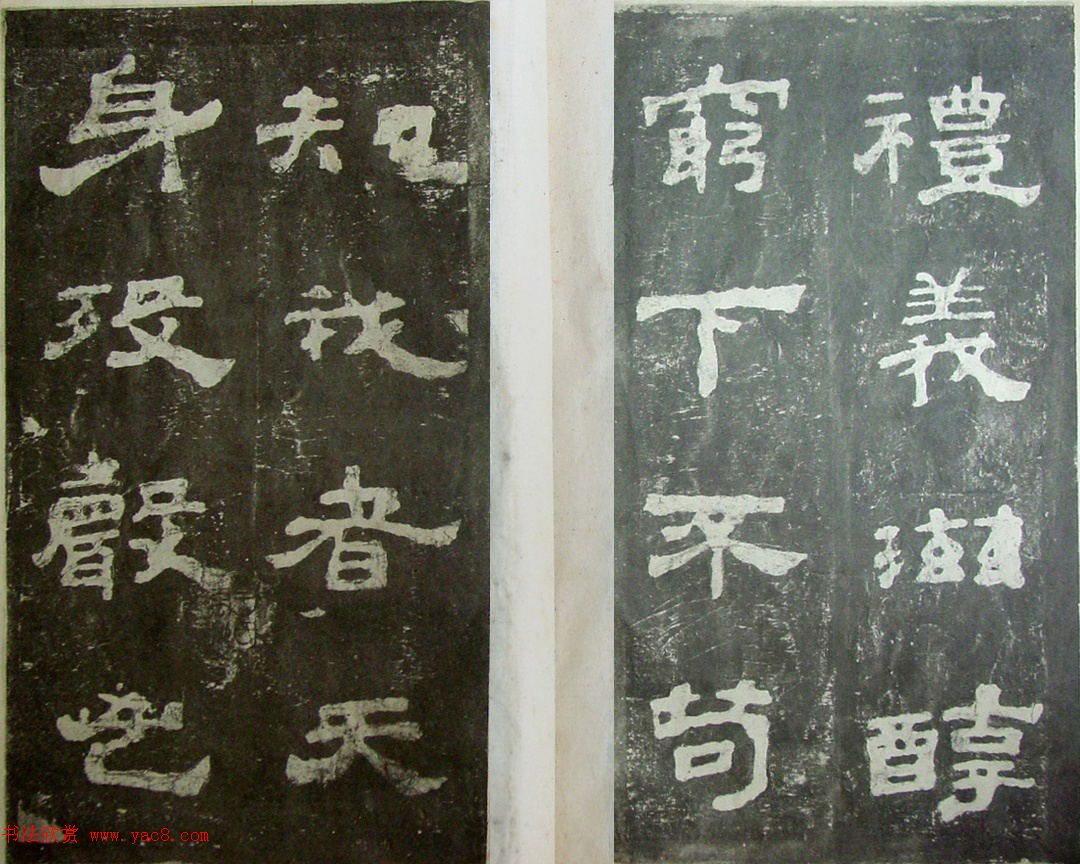 禮義滋醇
窮下不苟
知我者天
身殁聲鬯
书法欣赏 www.yac8.com